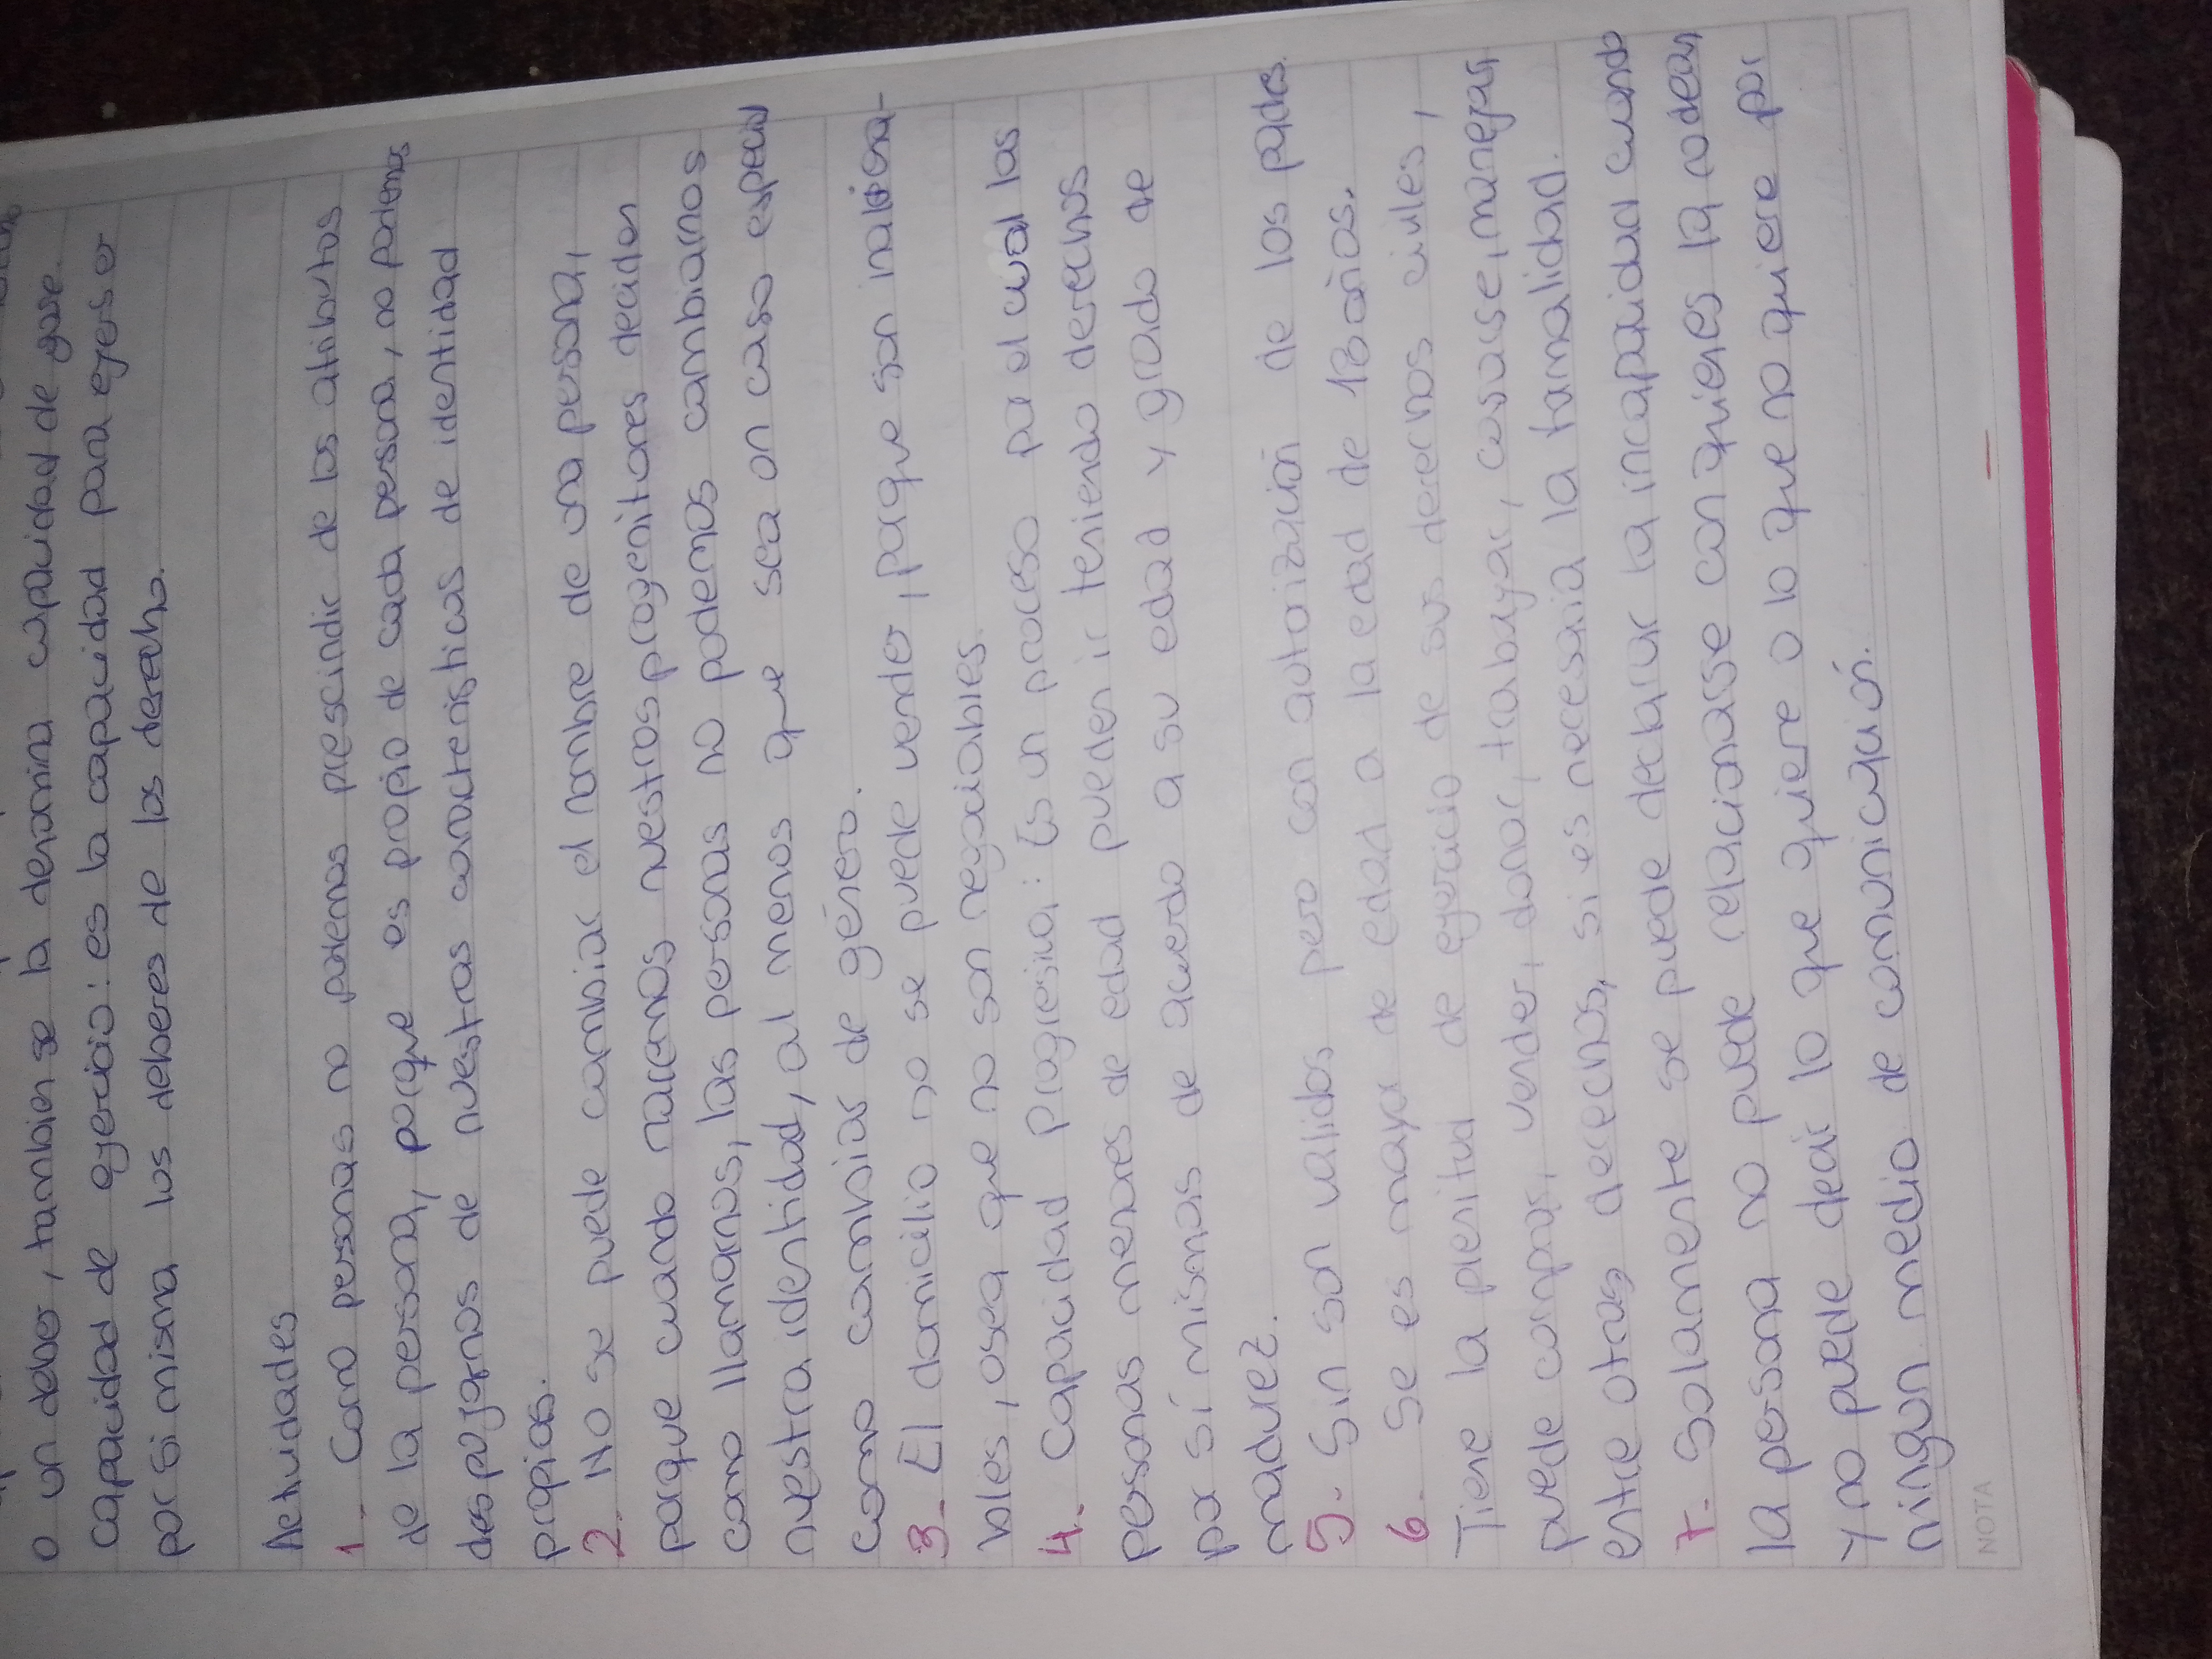 o un deber, tambien se la denomina capacidad de goce.
capacidad de ejercicio: es la capacidad para ejerser
por si misma los deberes de los derecho.
Actividades
1. Como personas no podemos prescindir de los atributos
de la persona, porque es propio de cada persona, no podemos
despojarnos de nuestras caracteristicas de identidad
propias.
2. No se puede cambiar el nombre de una persona,
porque cuando nacemos nuestros progenitores deciden
como llamarnos, las personas no podemos cambiarnos
nuestra identidad, al menos que sea un caso especial
como cambiar de género.
3. El domicilio no se puede vender, porque son inaliena-
bles, osea que no son negociables.
4. Capacidad progresiva: Es un proceso por el cual las
personas menores de edad pueden ir teniendo derechos
por sí mismos de acuerdo a su edad y grado de
madurez.
5. Sin son validos pero con autorización de los padres.
6. Se es mayor de edad a la edad de 18 años.
Tiene la plenitud de ejercicio de sus derechos civiles,
puede compar, vender, donar, trabajar, casarse, manejar,
entre otras derechos, si es necesaria la formalidad.
7. Solamente se puede declarar la incapacidad cuando
la persona no puede relacionarse con quienes la rodean
y no puede decir lo que quiere o lo que no quiere por
ningun medio de comunicación.
NOTA